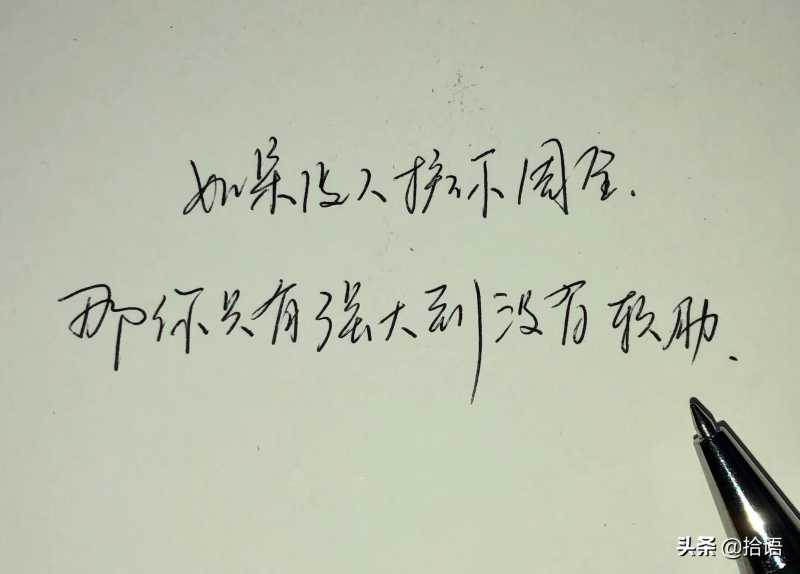 如果没人护你周全.
那你只有强大到没有软肋.
头条 @拾语